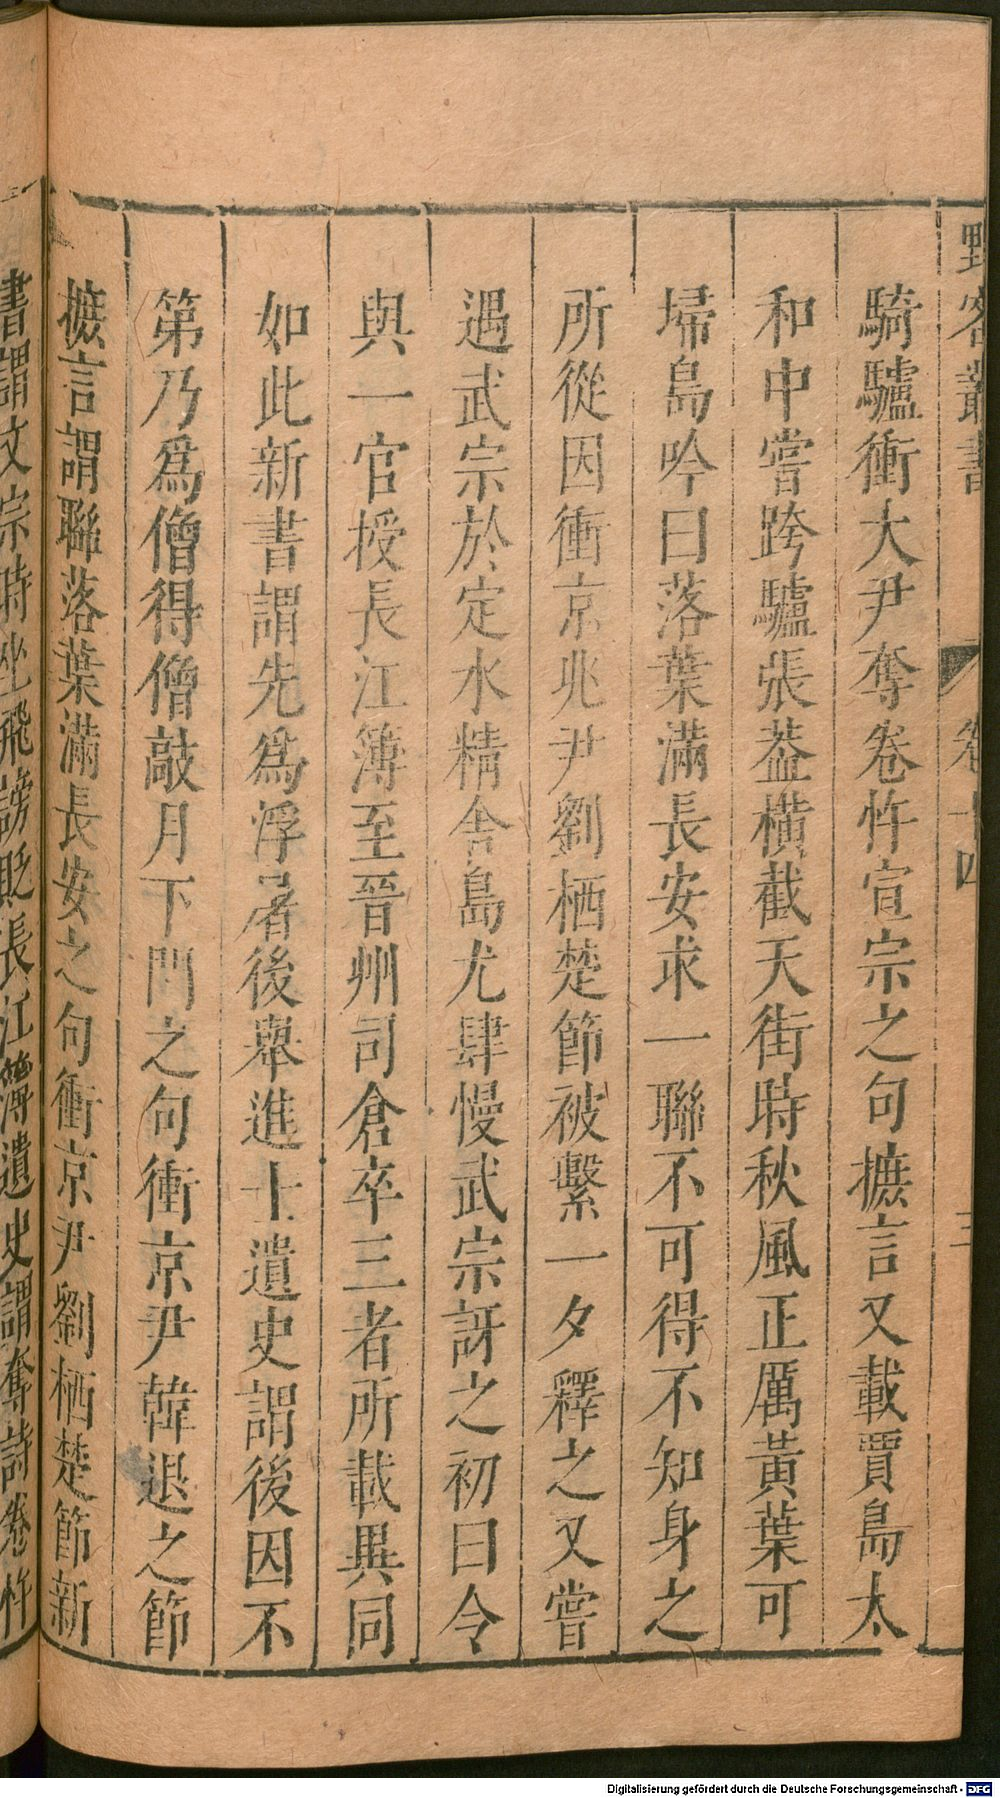 野客叢書 卷十四 三
騎驢衝大尹奪卷忤宣宗之句摭言又載賈島太
和中嘗跨驢張葢橫截天街時秋風正厲黃葉可
埽島吟曰落葉滿長安求一聯不可得不知身之
所從因衝京兆尹劉栖楚節被繫一夕釋之又嘗
遇武宗於定水精舍島尤肆慢武宗訝之初曰令
與一官授長江簿至晉州司倉卒三者所載異同
如此新書謂先爲浮屠後舉進士遺史謂後因不
第乃爲僧得僧敲月下門之句衝京尹韓退之節
摭言謂聯落葉滿長安之句衝京尹劉栖楚節新
書謂文宗時坐飛謗貶長江簿遺史謂奪詩卷忤
Digitalisierung gefördert durch die Deutsche Forschungsgemeinschaft - DFG